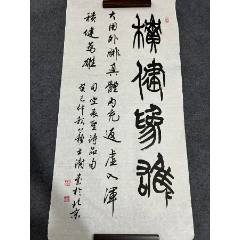 積健為雄
大用外腓真體內充返虛入渾
積健為雄 司空表聖詩品句
癸巳仲秋於北京